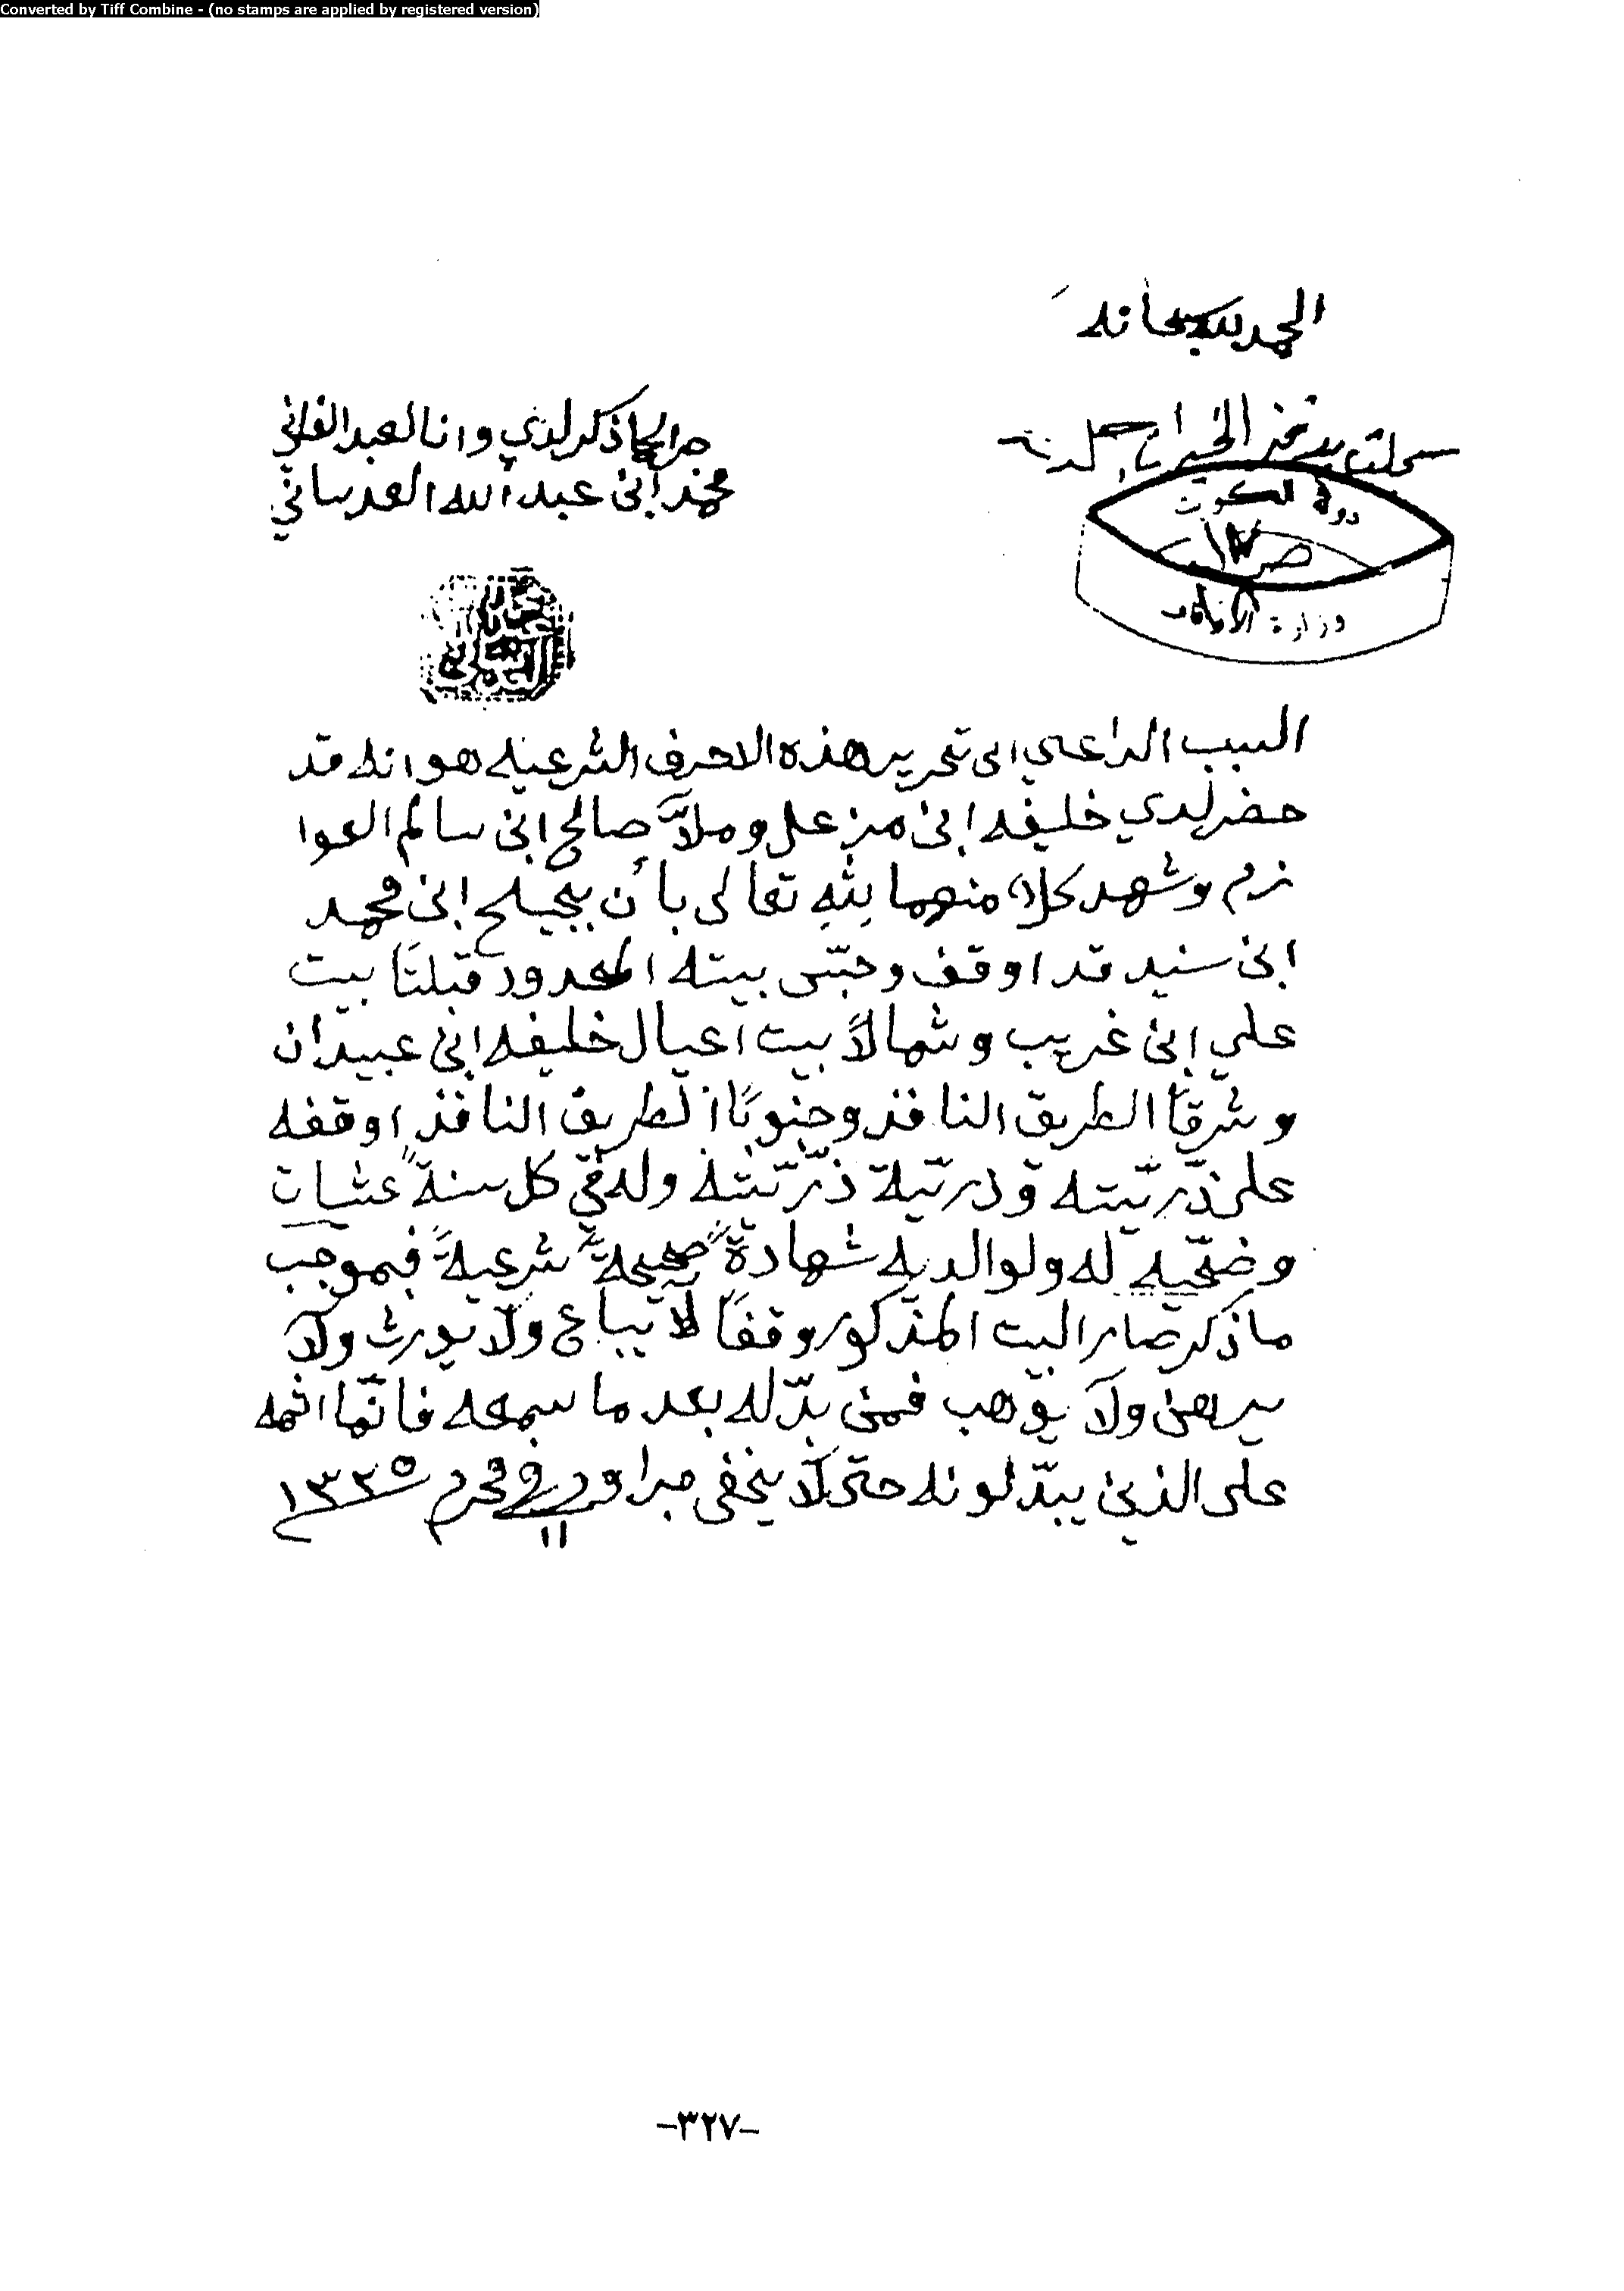 Converted by Tiff Combine - (no stamps are applied by registered version)
الحمد لله سبحانه
جرا ما ذكر لدي وانا العبد الفاني
محمد ابن عبد الله العدساني
سجلت بدفتر الخيرات
دولة الكويت
ص ١٣
وزارة الأوقاف
السبب الداعي الى تحرير هذه الاحرف الشرعيه هو انه قد
حضر لدي خليفه ابن مزعل وملاّ صالح ابن سالم العوا
زم وشهد كلاً منهما لله تعالى بأن بجيلح ابن محمد
ابن سنيد قد اوقف وحبّس بيته المحدود قبلتًا بيت
علي ابن غريب وشمالاً بيت اعيال خليفه ابن عبيدان
وشرقًا الطريق النافذ وجنوبًا الطريق النافذ اوقفه
على ذرّيّته وذريّة ذرّيّته وله في كل سنةً عشيات
وضحّيه له ولوالديه شهادةً صحيحةً شرعيةً فبموجب
ما ذكر صار البيت المذكور وقفًا لا يباع ولا يورث ولا
يرهن ولا يوهب فمن بدّله بعد ما سمعه فانّما اثمه
على الذين يبدّلونه حتى لا يخفى جرا وحرر في ١١ محرم ١٣٣٥
-٣٢٧-